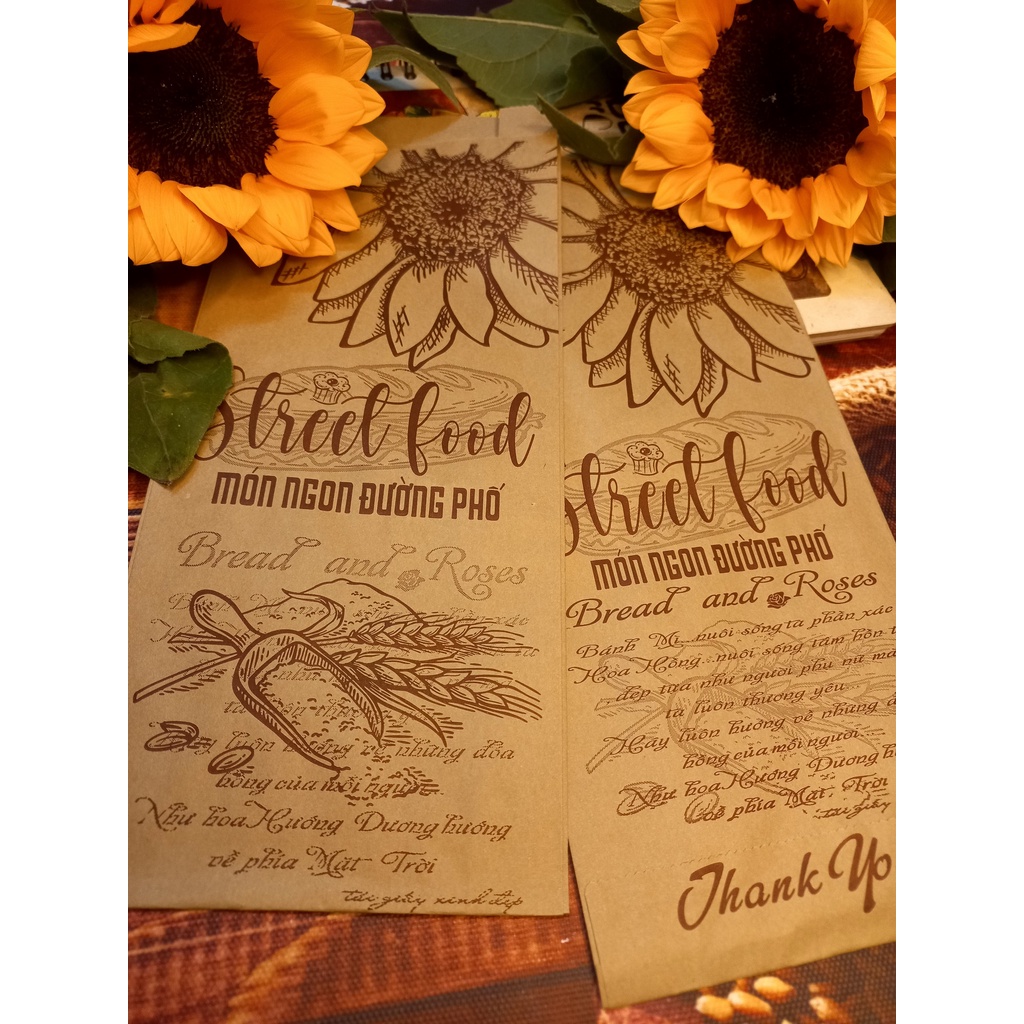 Street food
MÓN NGON ĐƯỜNG PHỐ
Bread and Roses
Hãy luôn hướng về những đóa
hồng của mỗi người
Như hoa Hướng Dương hướng
về phía Mặt Trời
túi giấy xinh đẹp
Street food
MÓN NGON ĐƯỜNG PHỐ
Bread and Roses
Bánh Mì...nuôi sống ta phần xác
Hoa Hồng...nuôi sống tâm hồn t
đẹp tựa như người phụ nữ mà
ta luôn thương yêu...
Hãy luôn hướng về những đ
hồng của mỗi người...
Như hoa Hướng Dương hư
về phía Mặt Trời
túi giấy
Thank Yo